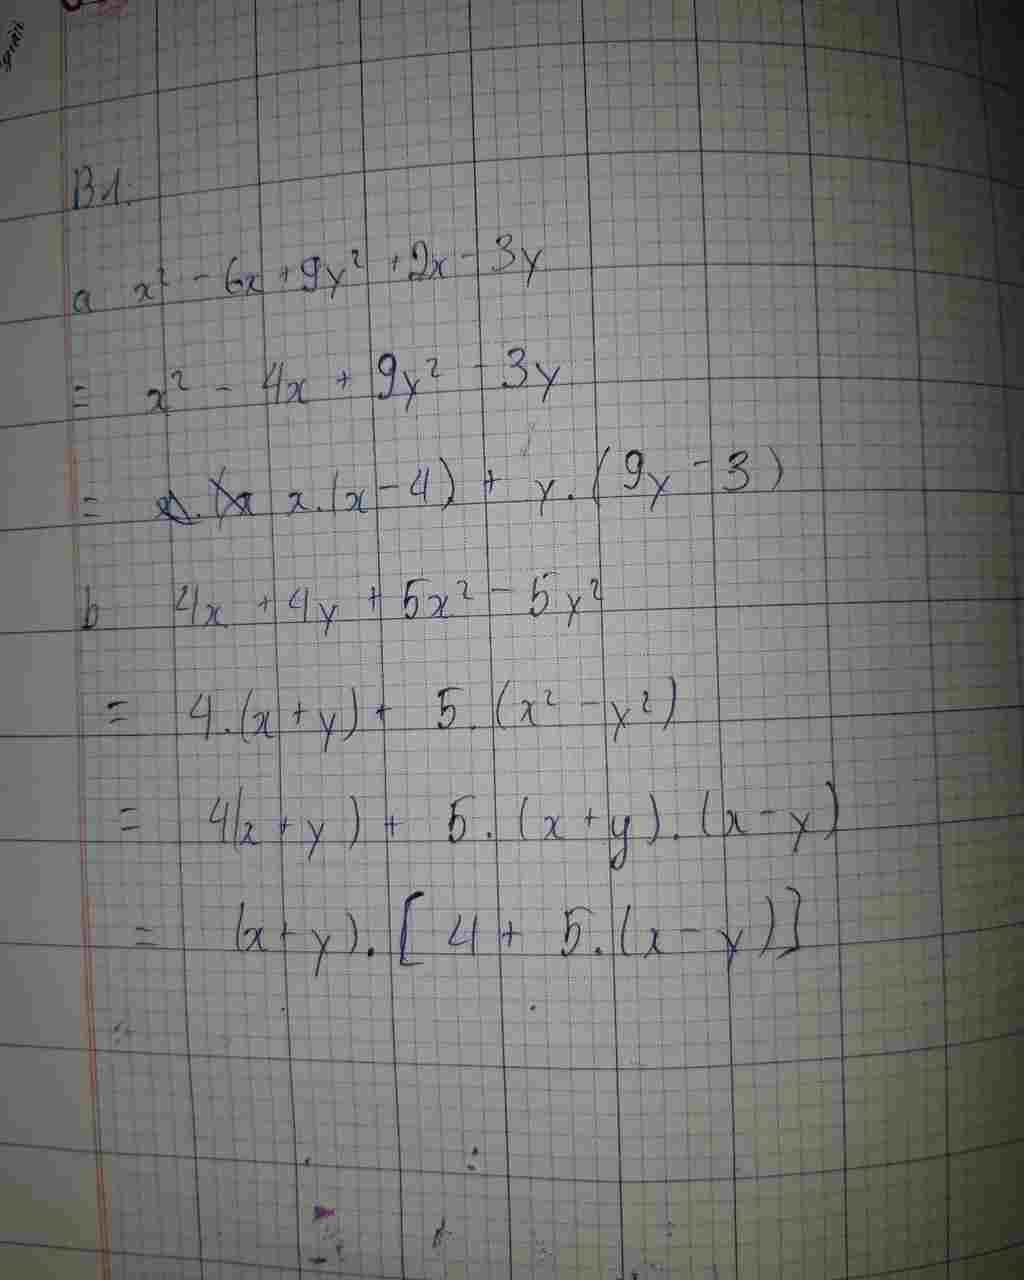 B1.
a x² - 6x + 9y² + 2x - 3y
= x² - 4x + 9y² - 3y
= x.(x - 4) + y.(9y - 3)
b 4x + 4y + 5x² - 5y²
= 4.(x + y) + 5.(x² - y²)
= 4(x + y) + 5.(x + y).(x - y)
= (x + y).[4 + 5.(x - y)]